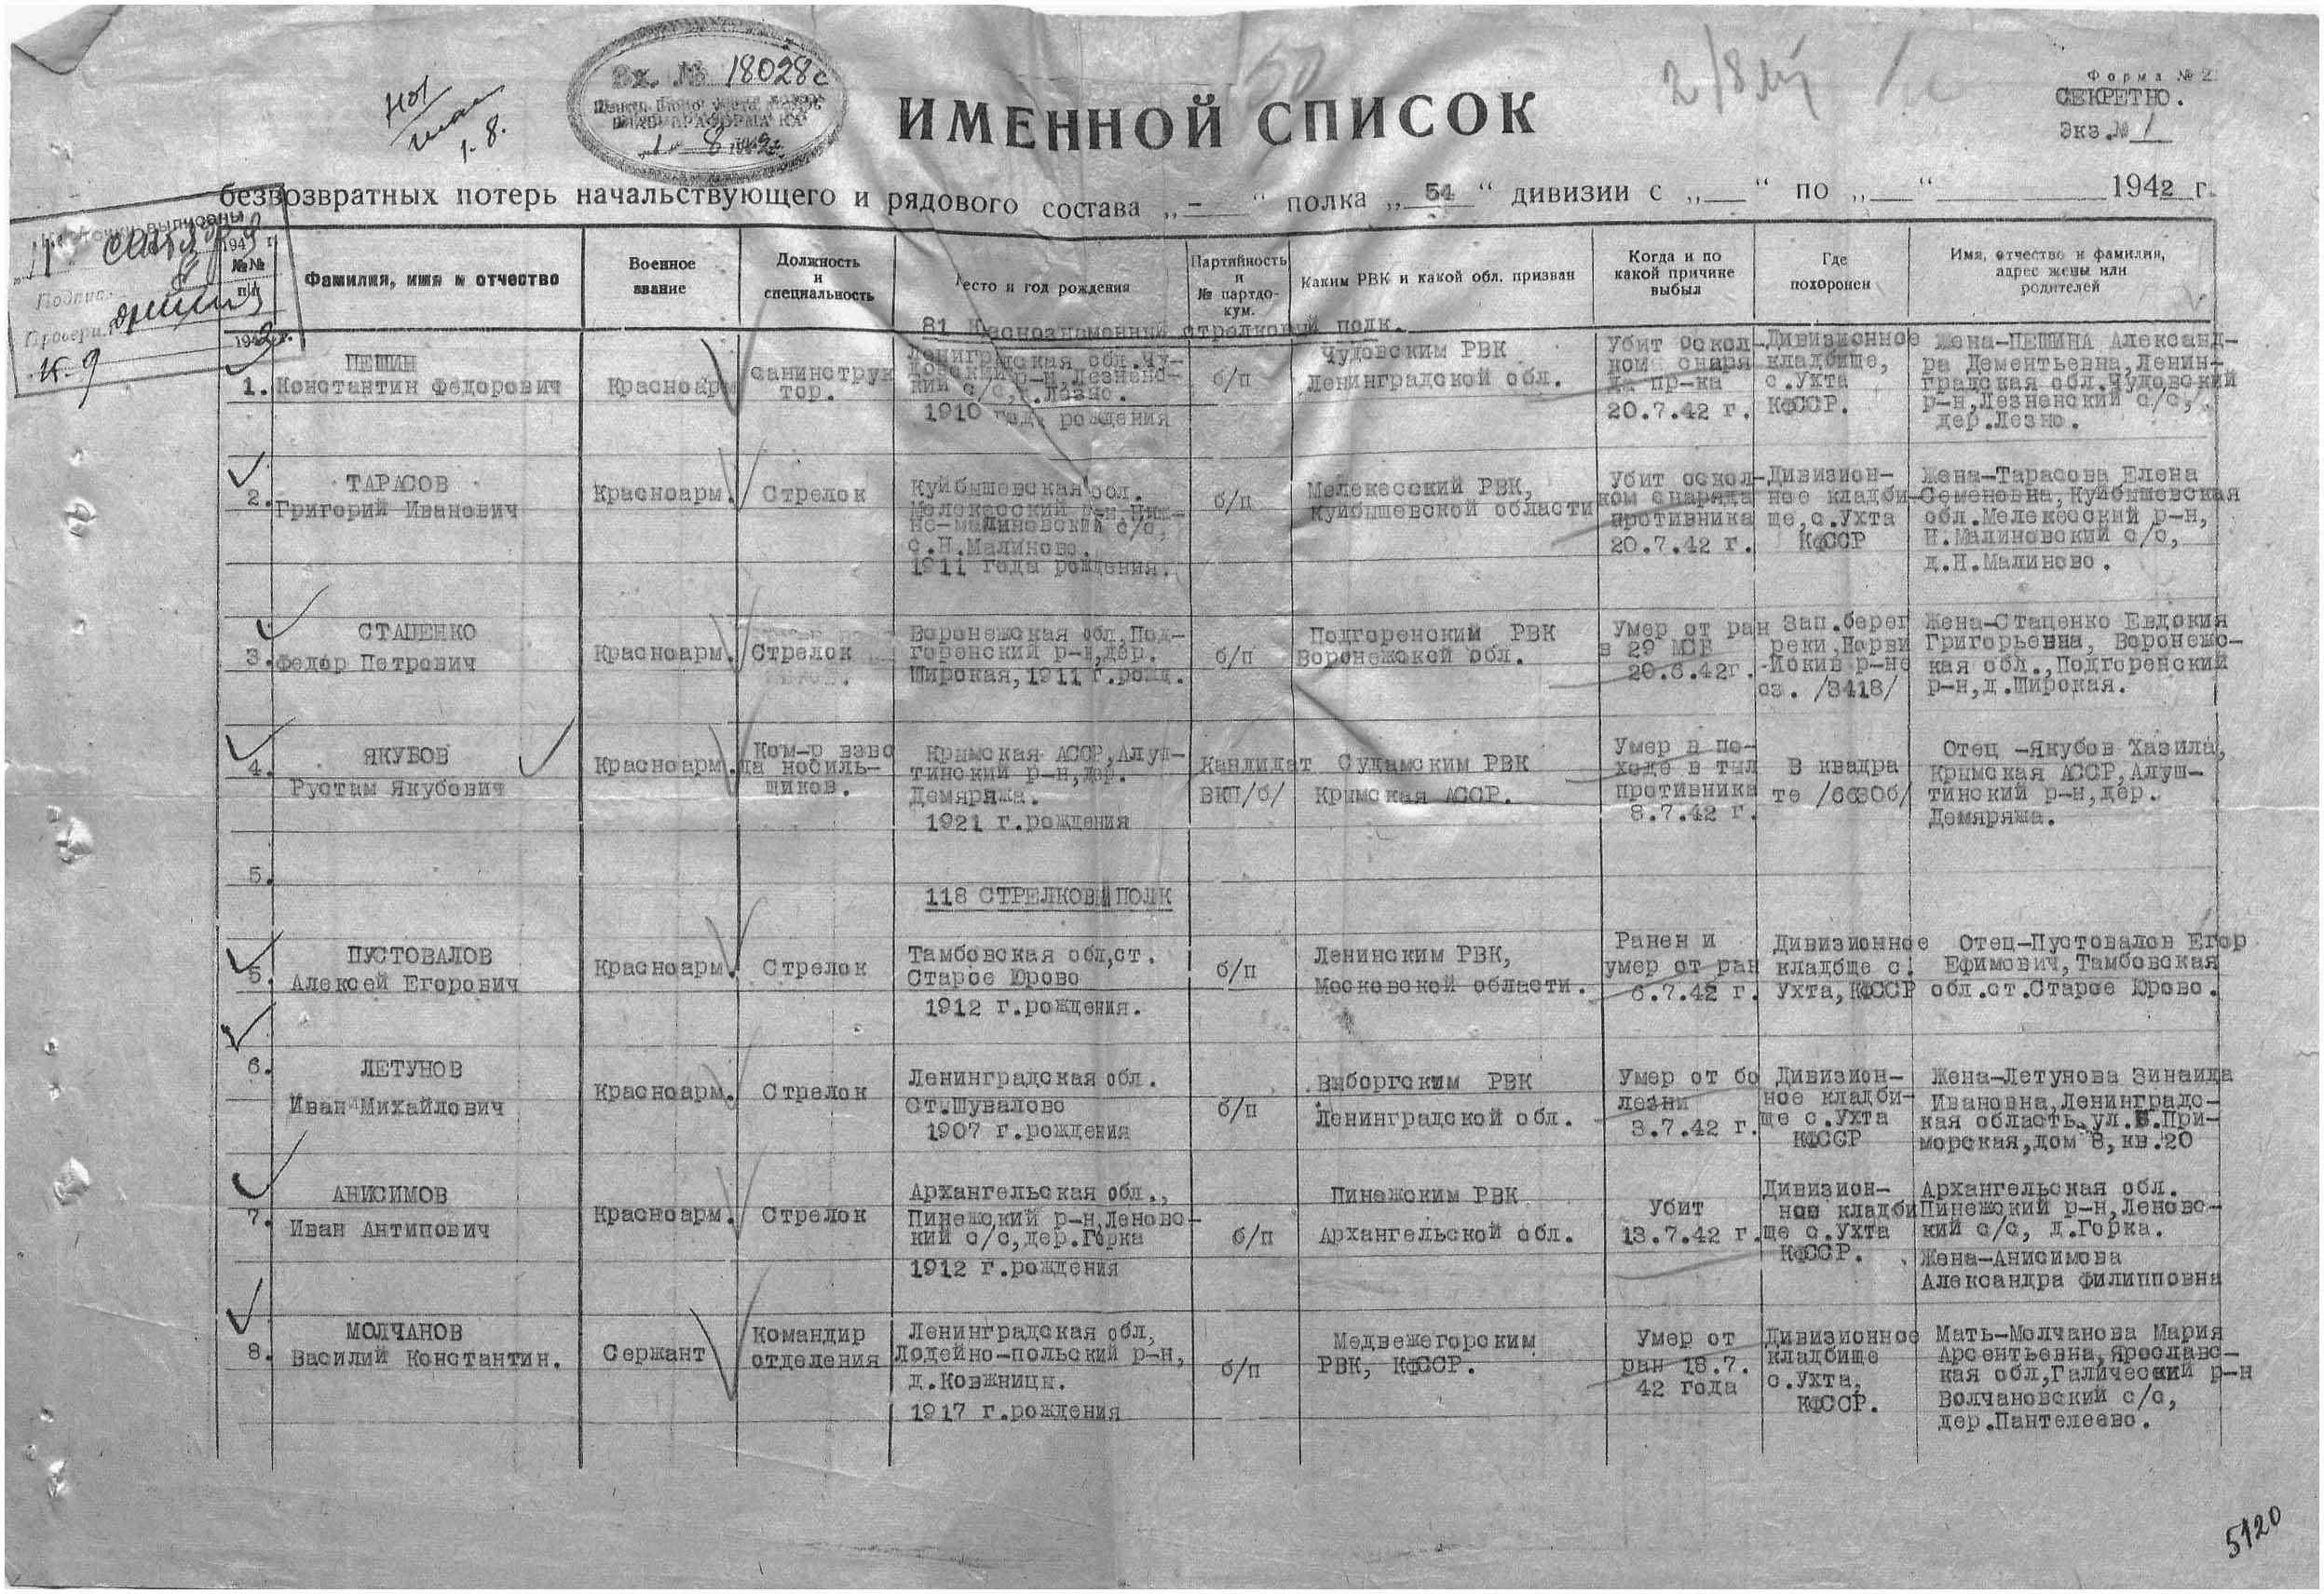 Вх. № 18028с
8 1942
1.8.
Форма № 2
СЕКРЕТНО.
Экз.№ 1
ИМЕННОЙ СПИСОК
безвозвратных потерь начальствующего и рядового состава „ - “ полка „ 54 “ дивизии с „ “ по „ “ 1942 г.
№№ п/п
Фамилия, имя и отчество
Военное звание
Должность и специальность
Место и год рождения
Партийность и № партдокум.
Каким РВК и какой обл. призван
Когда и по какой причине выбыл
Где похоронен
Имя, отчество и фамилия, адрес жены или родителей
81 Краснознаменный стрелковый полк.
1.
ПЕШИН
Константин Федорович
Красноарм
санинструк
тор.
Ленинградская обл.Чу-
довский р-н,Лезненс-
кий с/с, .Лезно.
1910 год. рождения
б/п
Чудовским РВК
Ленинградской обл.
Убит оскол-
ком снаря
да пр-ка
20.7.42 г.
Дивизионное
кладбище,
с.Ухта
КФССР.
Жена-ПЕШИНА Александ-
ра Дементьевна,Ленин-
градская обл.Чудовский
р-н,Лезненский с/с,
дер.Лезно.
2.
ТАРАСОВ
Григорий Иванович
Красноарм.
Стрелок
Куйбышевская обл.
Мелекесский р-н.Ниж-
не-малиновский с/с,
с.Н.Малиново.
1911 года рождения.
б/п
Мелекесский РВК,
Куйбышевской области
Убит оскол-
ком снаряда
противника
20.7.42 г.
Дивизион-
ное кладби-
ще,с.Ухта
КФССР
Жена-Тарасова Елена
Семеновна,Куйбышевская
обл.Мелекесский р-н,
Н.Малиновский с/с,
д.Н.Малиново.
3.
СТАЦЕНКО
Федор Петрович
Красноарм.
Стрелок
Воронежская обл.Под-
горенский р-н,дер.
Широкая,1911 г.рожд.
б/п
Подгоренским РВК
Воронежской обл.
Умер от ран
в 29 МСБ
20.6.42г.
Зап.берег
реки,Норви
-Йокив р-не
оз. /3418/
Жена-Стаценко Евдокия
Григорьевна, Воронежс-
кая обл.,Подгоренский
р-н,д.Широкая.
4.
ЯКУБОВ
Рустам Якубович
Красноарм.
Ком-р взво
да носиль-
щиков.
Крымская АССР,Алуш-
тинский р-н,дер.
Демяряжа.
1921 г.рождения
Кандидат
ВКП/б/
Судакским РВК
Крымская АССР.
Умер в по-
ходе в тыл
противника
8.7.42 г.
В квадра
те /6630б/
Отец -Якубов Хазила,
Крымская АССР,Алуш-
тинский р-н,дер.
Демяряжа.
5.
118 СТРЕЛКОВЫЙ ПОЛК
5.
ПУСТОВАЛОВ
Алексей Егорович
Красноарм.
Стрелок
Тамбовская обл,ст.
Старое Юрово
1912 г.рождения.
б/п
Ленинским РВК,
Московской области.
Ранен и
умер от ран
6.7.42 г.
Дивизионное
кладбще с.
Ухта,КФССР
Отец-Пустовалов Егор
Ефимович,Тамбовская
обл.ст.Старое Юрово.
6.
ЛЕТУНОВ
Иван Михайлович
Красноарм.
Стрелок
Ленинградская обл.
Ст.Шувалово
1907 г.рождения
б/п
Выборгским РВК
Ленинградской обл.
Умер от бо
лезни
3.7.42 г.
Дивизион-
ное кладби-
ще с.Ухта
КФССР
Жена-Летунова Зинаида
Ивановна,Ленинградс-
кая область,ул.Б.При-
морская,дом 8,кв.20
7.
АНИСИМОВ
Иван Антипович
Красноарм.
Стрелок
Архангельская обл.,
Пинежский р-н,Леновс-
кий с/с,дер.Горка
1912 г.рождения
б/п
Пинежским РВК
Архангельской обл.
Убит
13.7.42 г.
Дивизион-
ное кладби
ще с.Ухта
КФССР.
Архангельская обл.
Пинежский р-н,Леновс-
кий с/с, д.Горка.
Жена-Анисимова
Александра Филипповна
8.
МОЛЧАНОВ
Василий Константин.
Сержант
Командир
отделения
Ленинградская обл,
Лодейно-польский р-н,
д.Ковжницы.
1917 г.рождения
б/п
Медвежегорским
РВК, КФССР.
Умер от
ран 18.7.
42 года
Дивизионное
кладбище
с.Ухта,
КФССР.
Мать-Молчанова Мария
Арсентьевна,Ярославс-
кая обл,Галический р-н
Волчановский с/с,
дер.Пантелеево.
5120